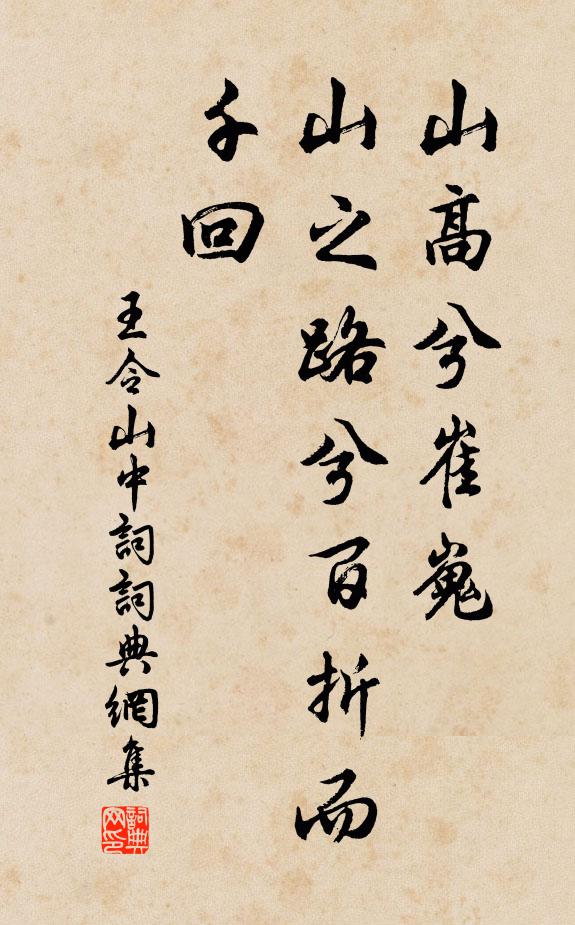 山高兮崔嵬
山之路兮百折而
千回
王令山中詞詞典網集
詞典网印